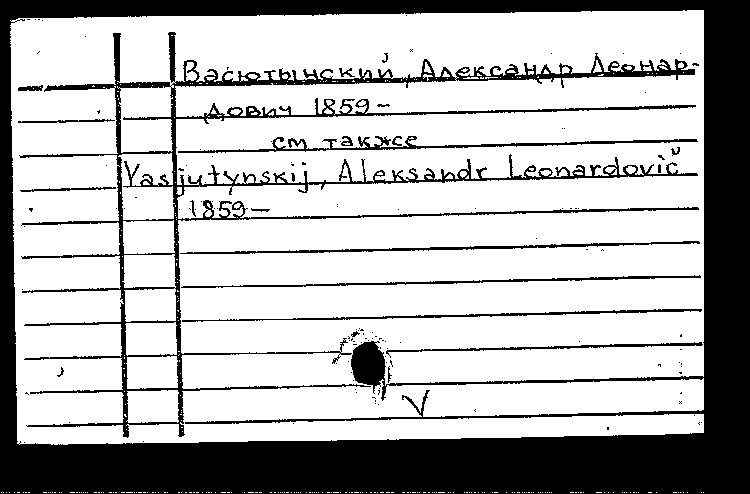 Васютынский, Александр Леонар-
дович 1859-
см также
Vasjutynskij, Aleksandr Leonardovič
1859-
V